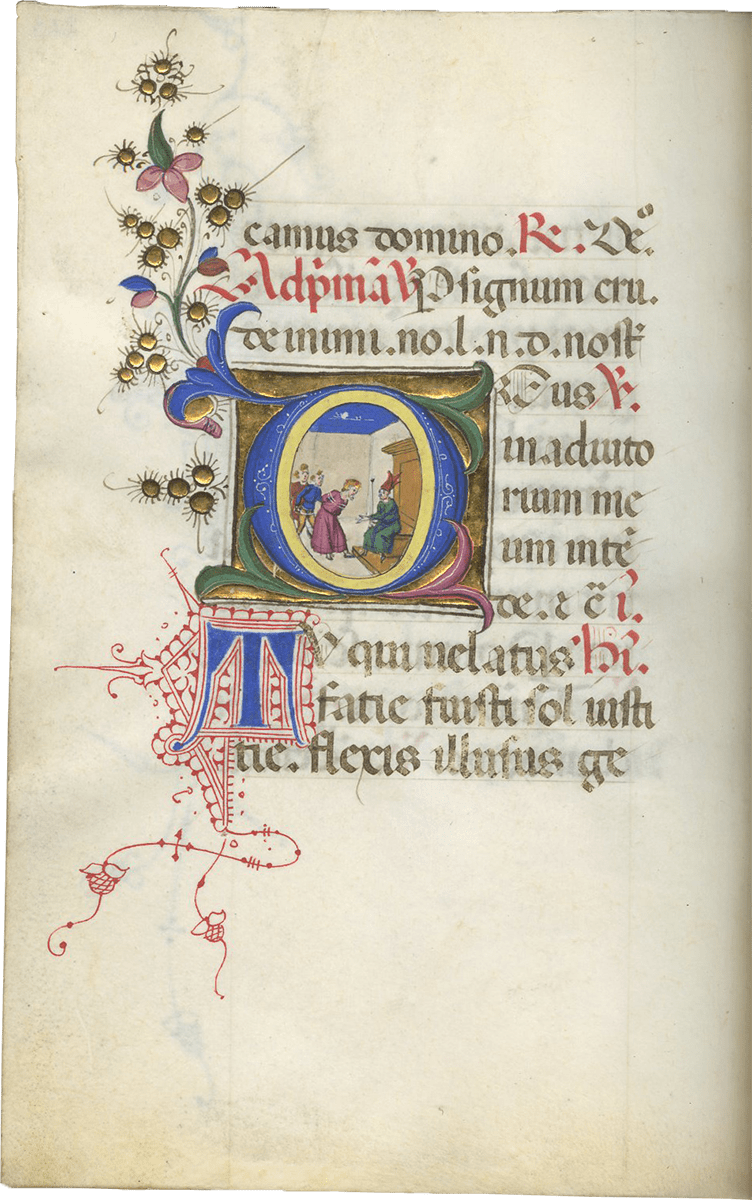 camus domino. R. Deo.
Ad p̄mā V̄ P signum cru.
de inimi. no. l. n. d. nost̄
DEus V.
in adiuto
rium me
um intē
de. ⁊ c̄ i.
TU qui uelatus hī.
fatie fuisti sol iusti
tie. flexis illusus ge